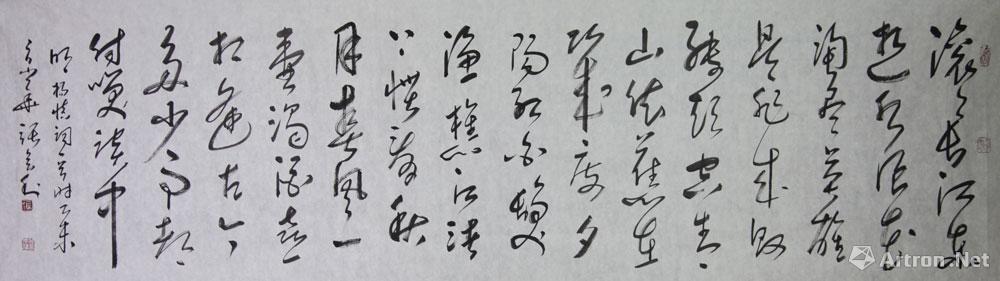 滚滚长江东
逝水浪花
淘尽英雄
是非成败
转头空青
山依旧在
几度夕
阳红白发
渔樵江渚
上惯看秋
月春风一
壶浊酒喜
相逢古今
多少事都
付笑谈中
明杨慎词
张
Artron.Net